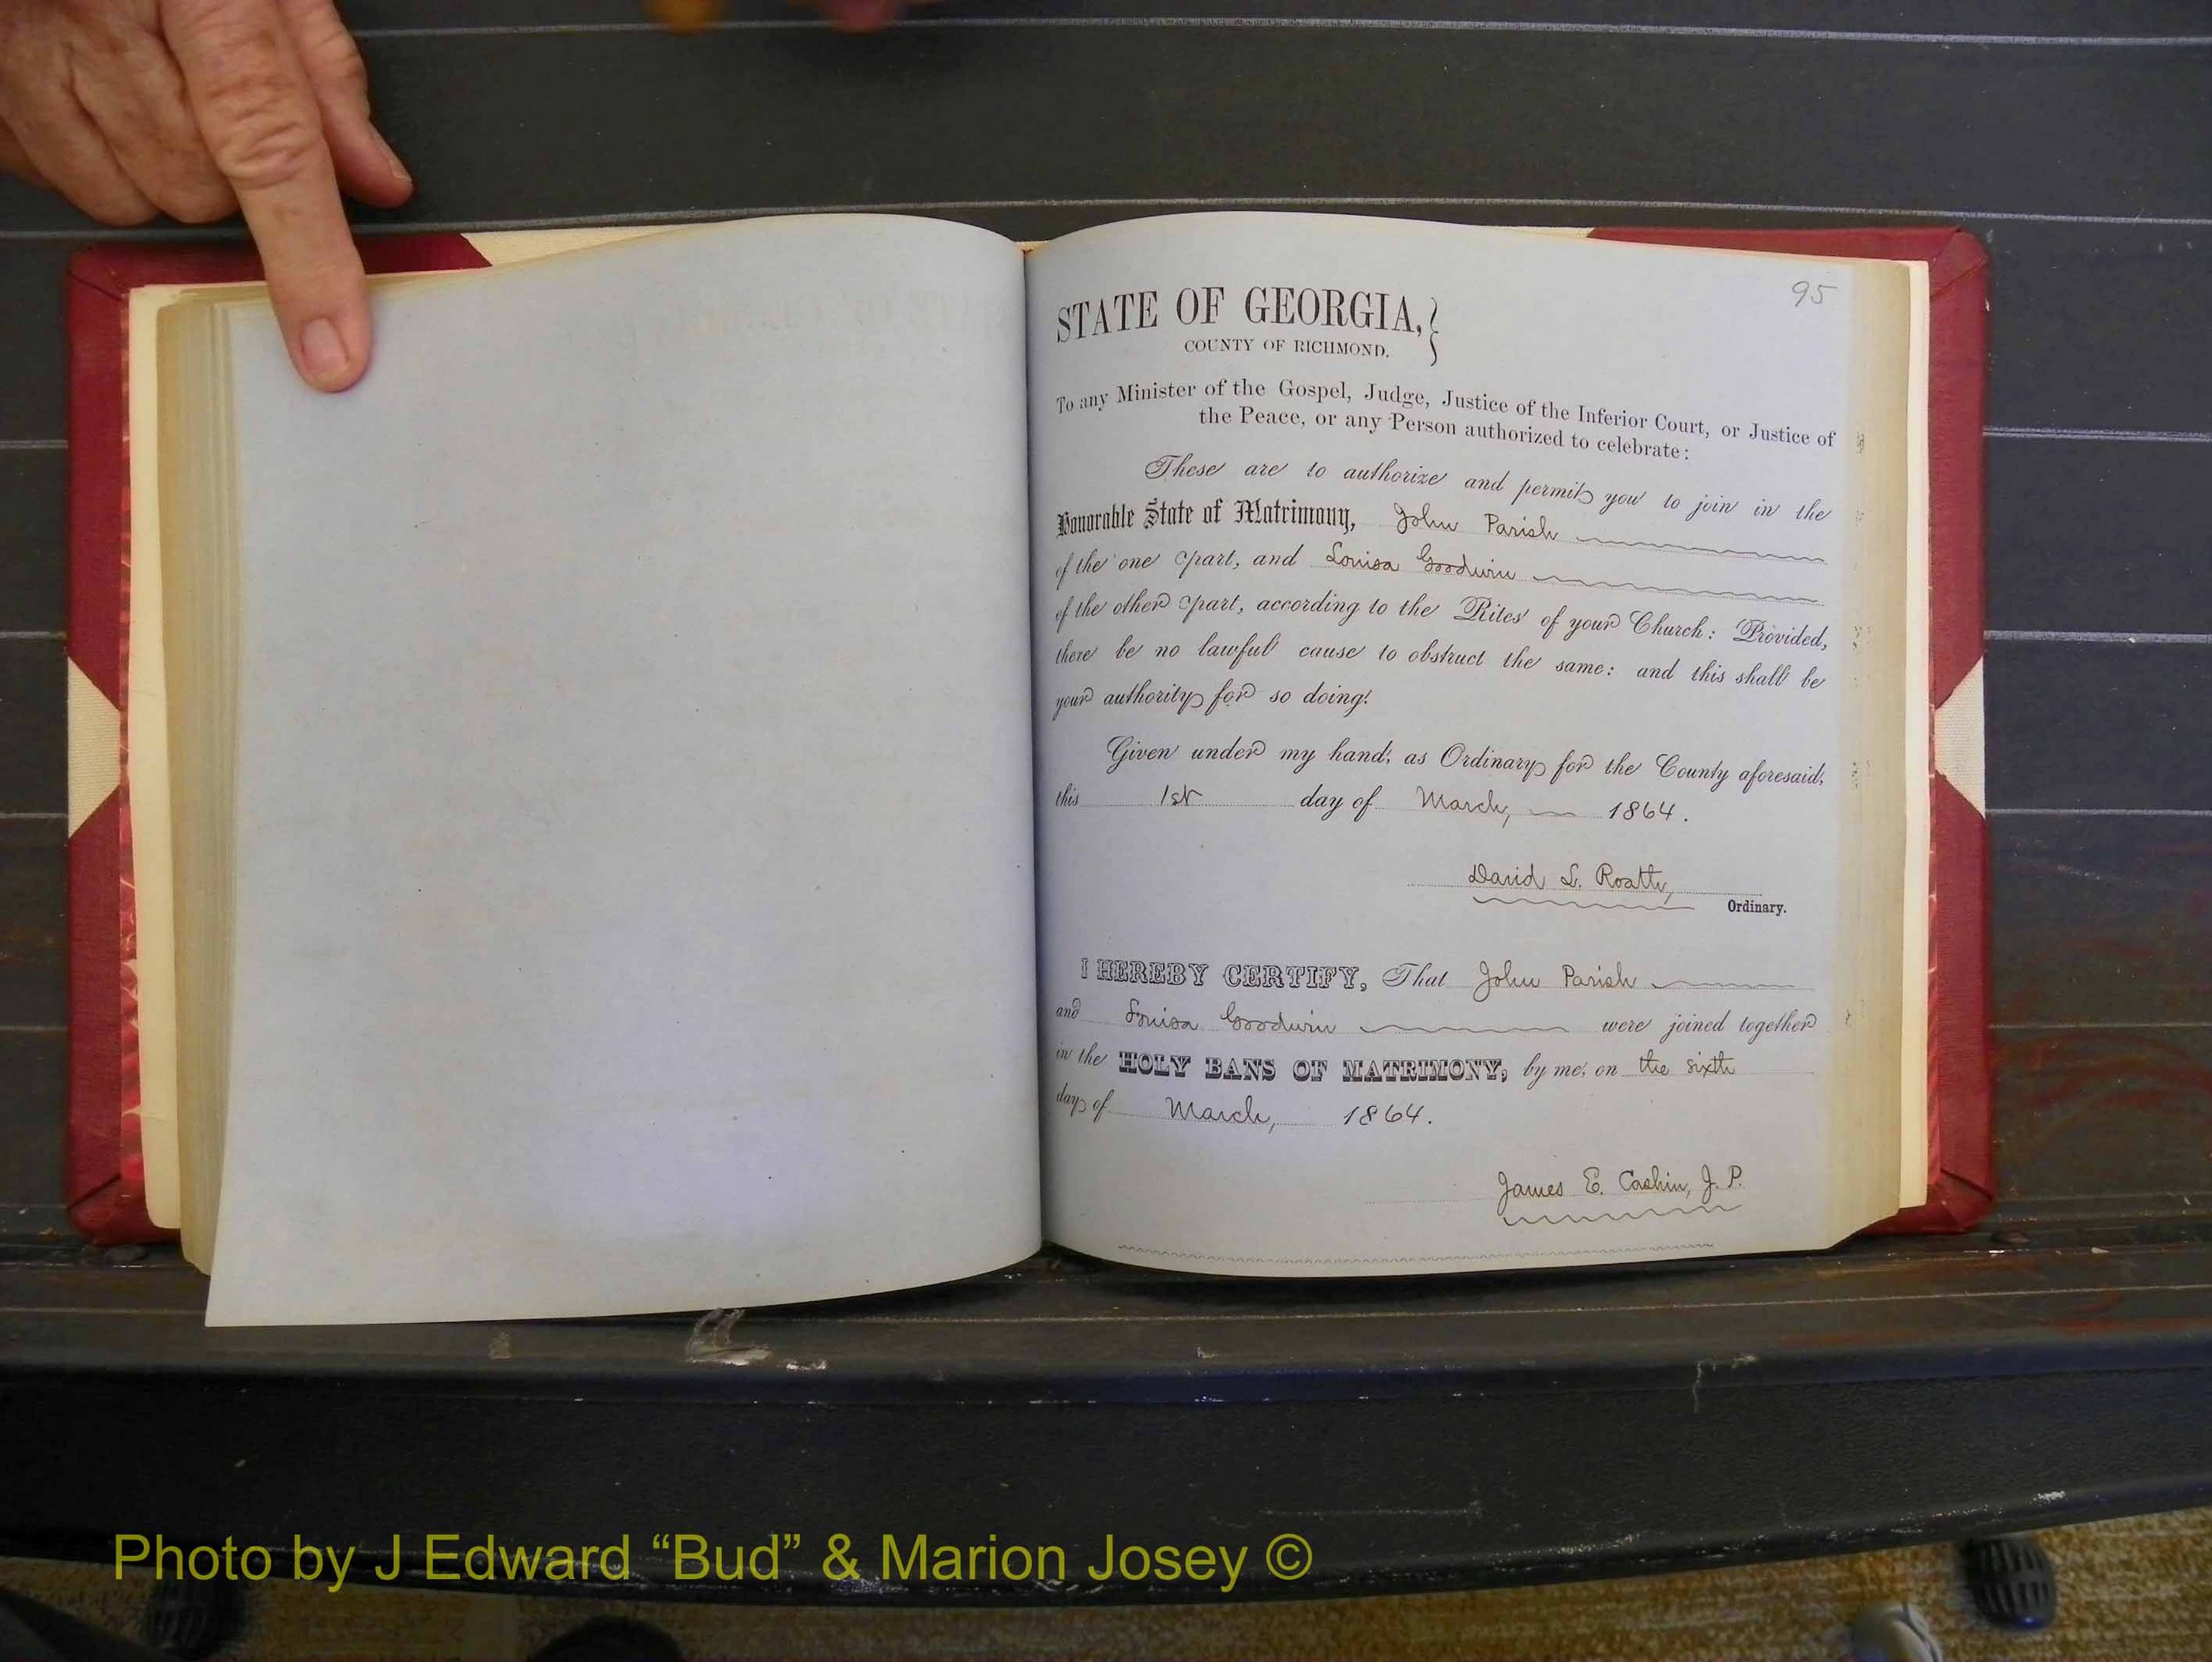 95
STATE OF GEORGIA,
COUNTY OF RICHMOND.
To any Minister of the Gospel, Judge, Justice of the Inferior Court, or Justice of
the Peace, or any Person authorized to celebrate:
These are to authorize and permit you to join in the
Honorable State of Matrimony, John Parish
of the one part, and Louisa Goodwin
of the other part, according to the Rites of your Church: Provided,
there be no lawful cause to obstruct the same: and this shall be
your authority for so doing.
Given under my hand, as Ordinary for the County aforesaid,
this 1st day of March, 1864.
David L. Roath,
Ordinary.
I HEREBY CERTIFY, That John Parish
and Louisa Goodwin were joined together
in the HOLY BANS OF MATRIMONY, by me, on the sixth
day of March, 1864.
James E. Cashin, J. P.
Photo by J Edward “Bud” & Marion Josey ©